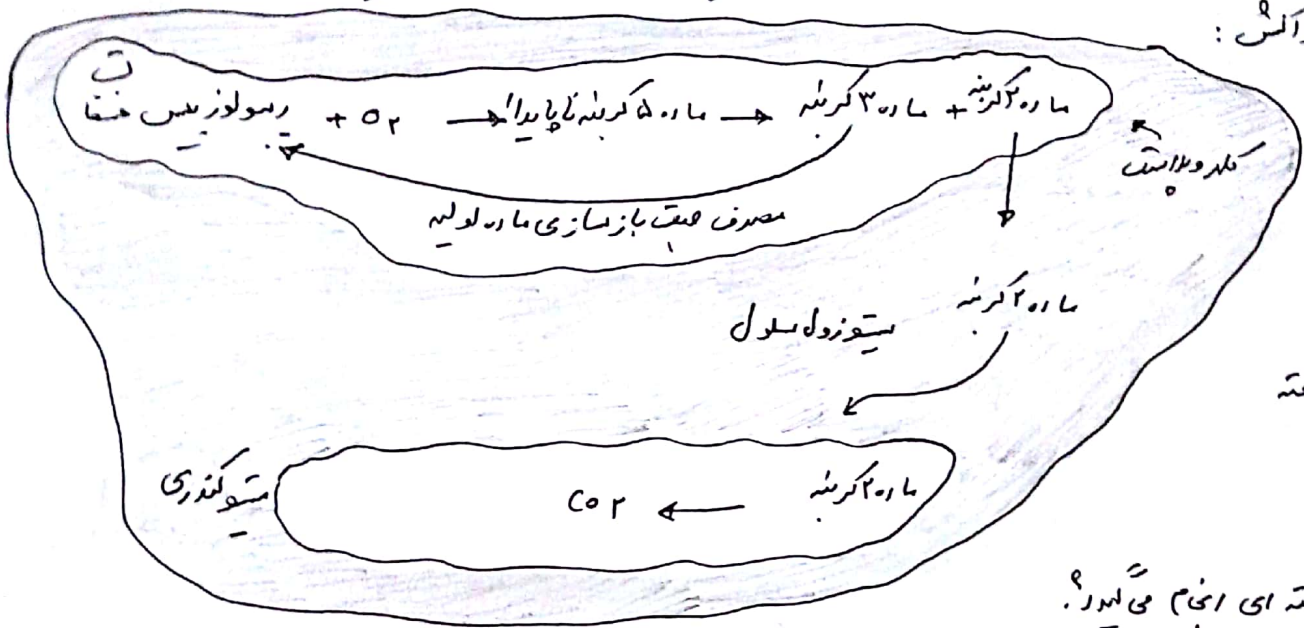 واکنش :
ریبولوز بیس فسفات + O۲ → ماده ۵ کربنه ناپایدار → ماده ۳ کربنه + ماده ۲ کربنه
کلروپلاست
مصرف جهت بازسازی ماده اولیه
ماده ۲ کربنه
سیتوزول سلول
میتوکندری
ماده ۲ کربنه → CO۲
ته ای انجام می گیرد؟